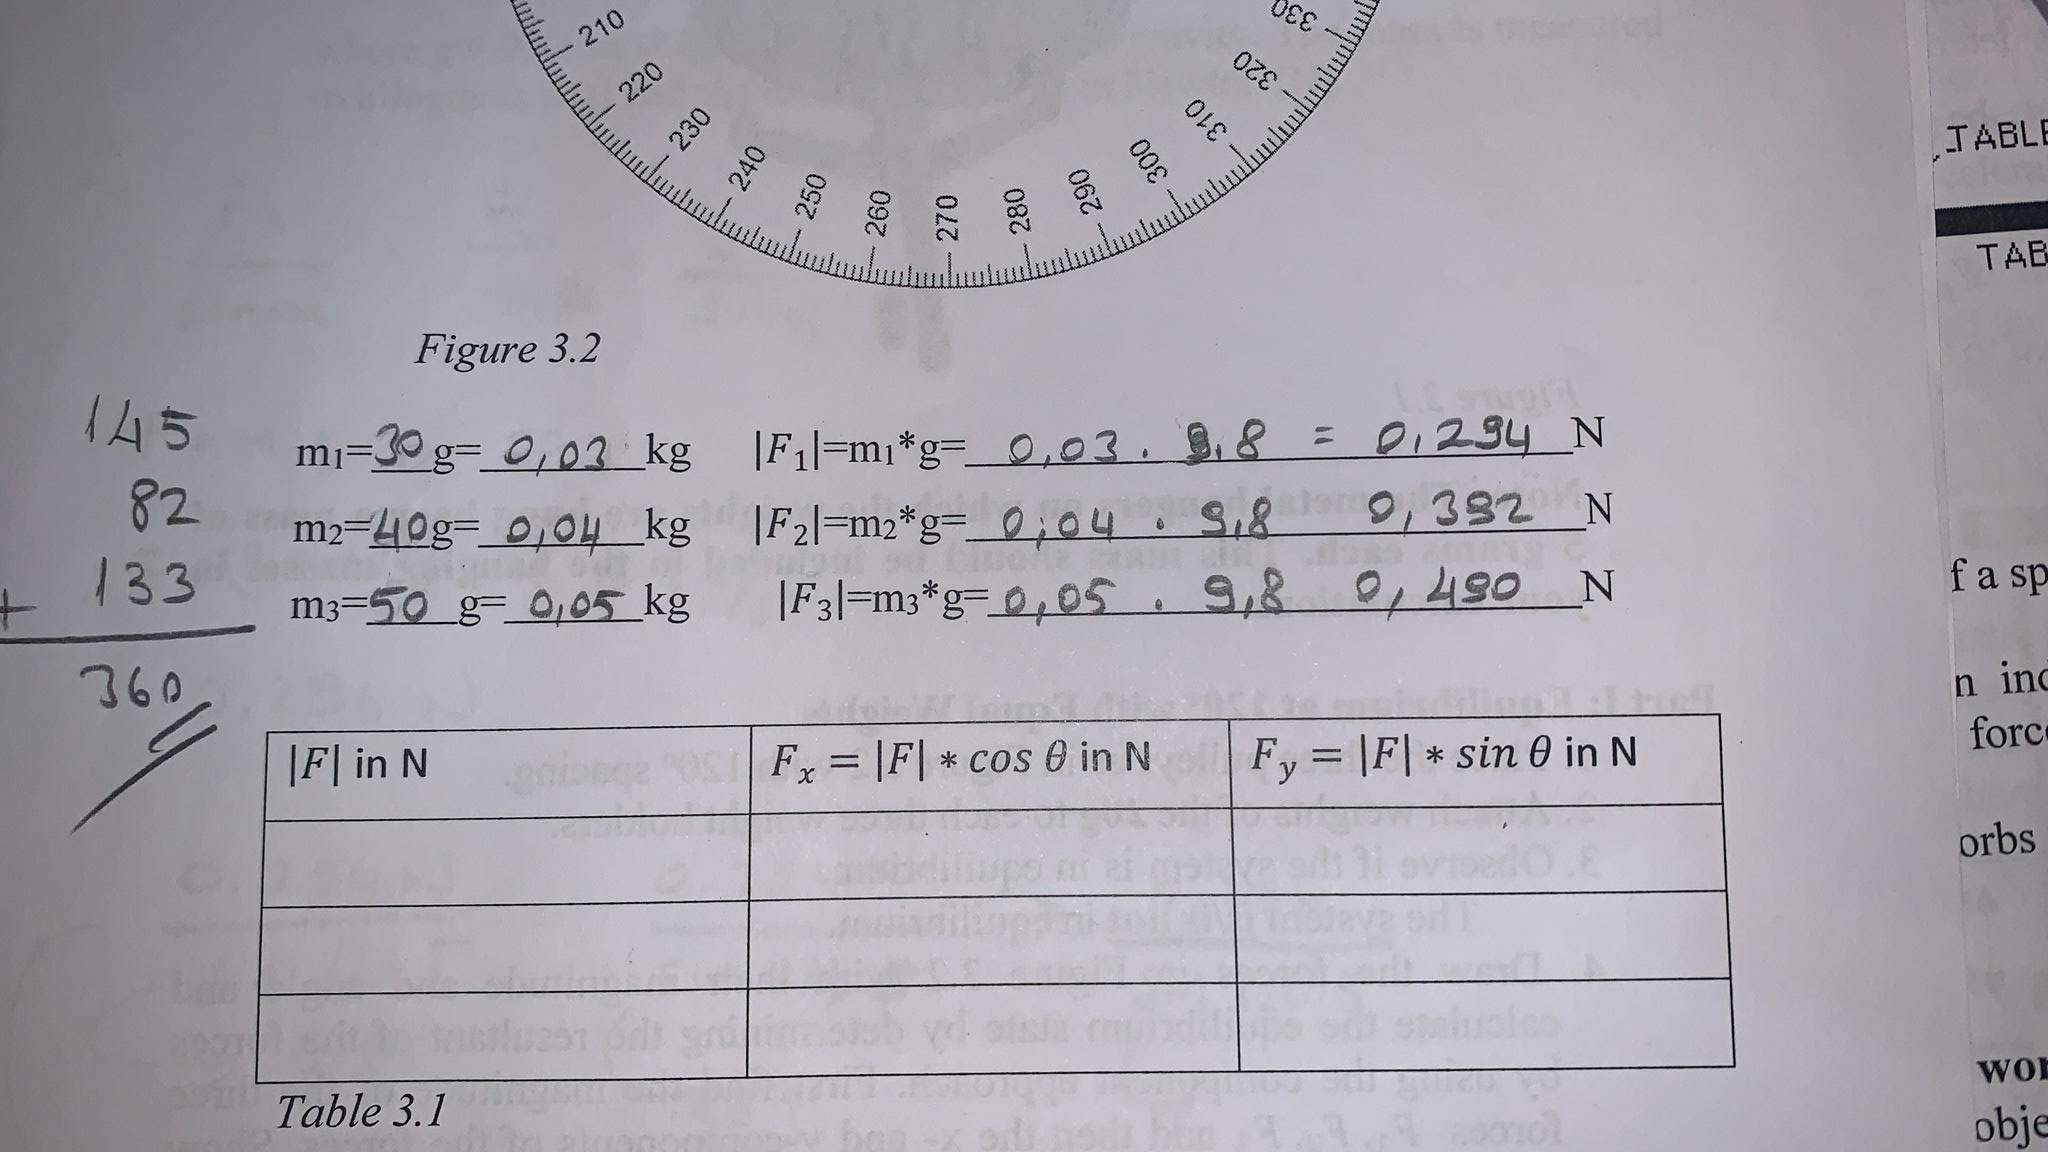 210
220
230
240
250
260
270
280
290
300
310
320
330
TABLE
TAB
Figure 3.2
145
82
+ 133
360
m1=30 g= 0,03 kg |F1|=m1*g= 0,03 . 9,8 = 0,294 N
m2=40g= 0,04 kg |F2|=m2*g= 0,04 . 9,8 0,392 N
m3=50 g= 0,05 kg |F3|=m3*g= 0,05 . 9,8 0,490 N
|F| in N Fx = |F| * cos θ in N Fy = |F| * sin θ in N
Table 3.1
f a sp
n inc
force
orbs
wor
obje